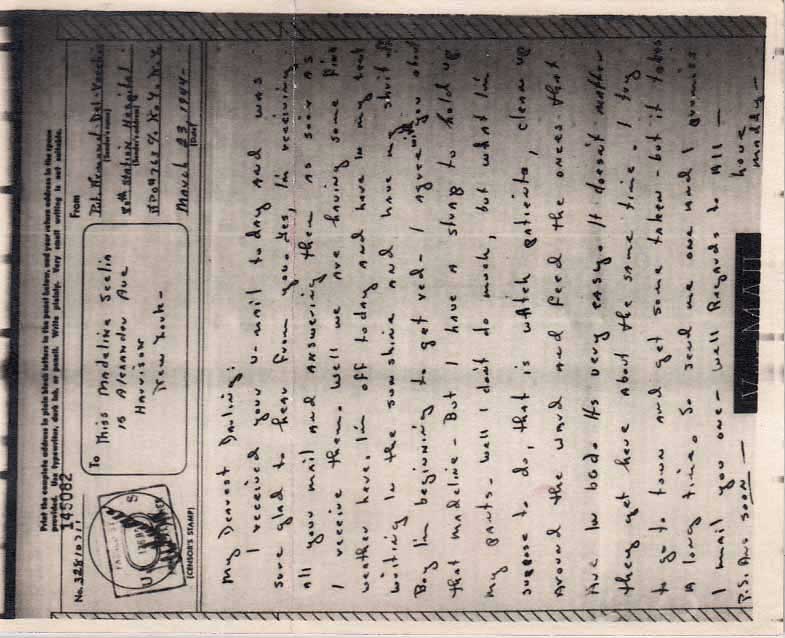 Print the complete address in plain block letters in the panel below, and your return address in the space
provided. Use typewriter, dark ink, or pencil. Write plainly. Very small writing is not suitable.
145082
No. 32810711
(CENSOR'S STAMP)
To Miss Madeline Seelin
15 Alexander Ave
Harrison
New York-
From
Pvt. Armand Del Vecchio
(Sender's name)
80th Station Hospital
(Sender's address)
APO # 761 % N.Y. N.Y.
March 23, 1944-
(Date)
My Dearest Darling:
I received your v-mail today and was
sure glad to hear from you. Yes, I'm receiving
all your mail and answering them as soon as
I receive them. Well we are having some fine
weather here. I'm off today and here in my tent
writing in the sunshine and have my shirt off
Boy I'm beginning to get red - I agree with you about
that madeline - But I have a string to hold up
my pants - Well I don't do much, but what I'm
suppose to do, that is watch patients, clean up
around the ward and feed the ones that
are in bed. It's very easy - It doesn't matter
they get here about the same time. I try
to go to town and get some taken - but it takes
a long time. So send me one and I promise
I mail you one - Well Regards to All -
Love
P.S. Ans soon -
V-MAIL